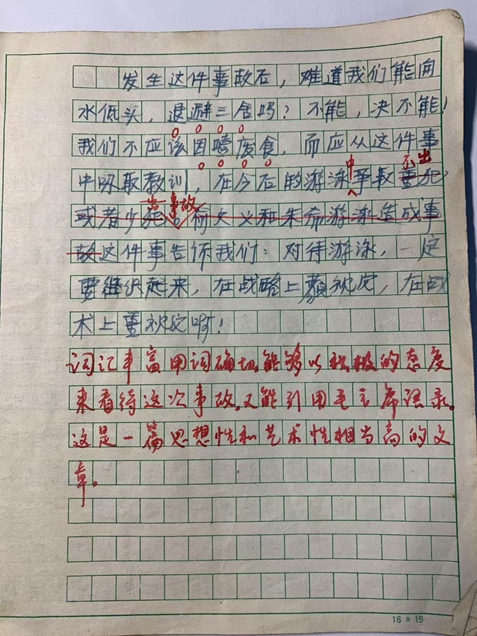 发生这件事故后，难道我们能向
水低头，退避三舍吗？不能，决不能！
我们不应该因噎废食，而应从这件事
中吸取教训，在今后的游泳中争取不出
或者少出事故
故这件事告诉我们：对待游泳，一定
要组织起来，在战略上藐视它，在战
术上重视它啊！
词汇丰富用词确切，能够以积极的态度
来看待这次事故。又能引用毛主席语录。
这是一篇思想性和艺术性相当高的文
章。
16×15